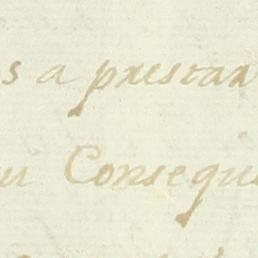 s a prestar
u Consequ